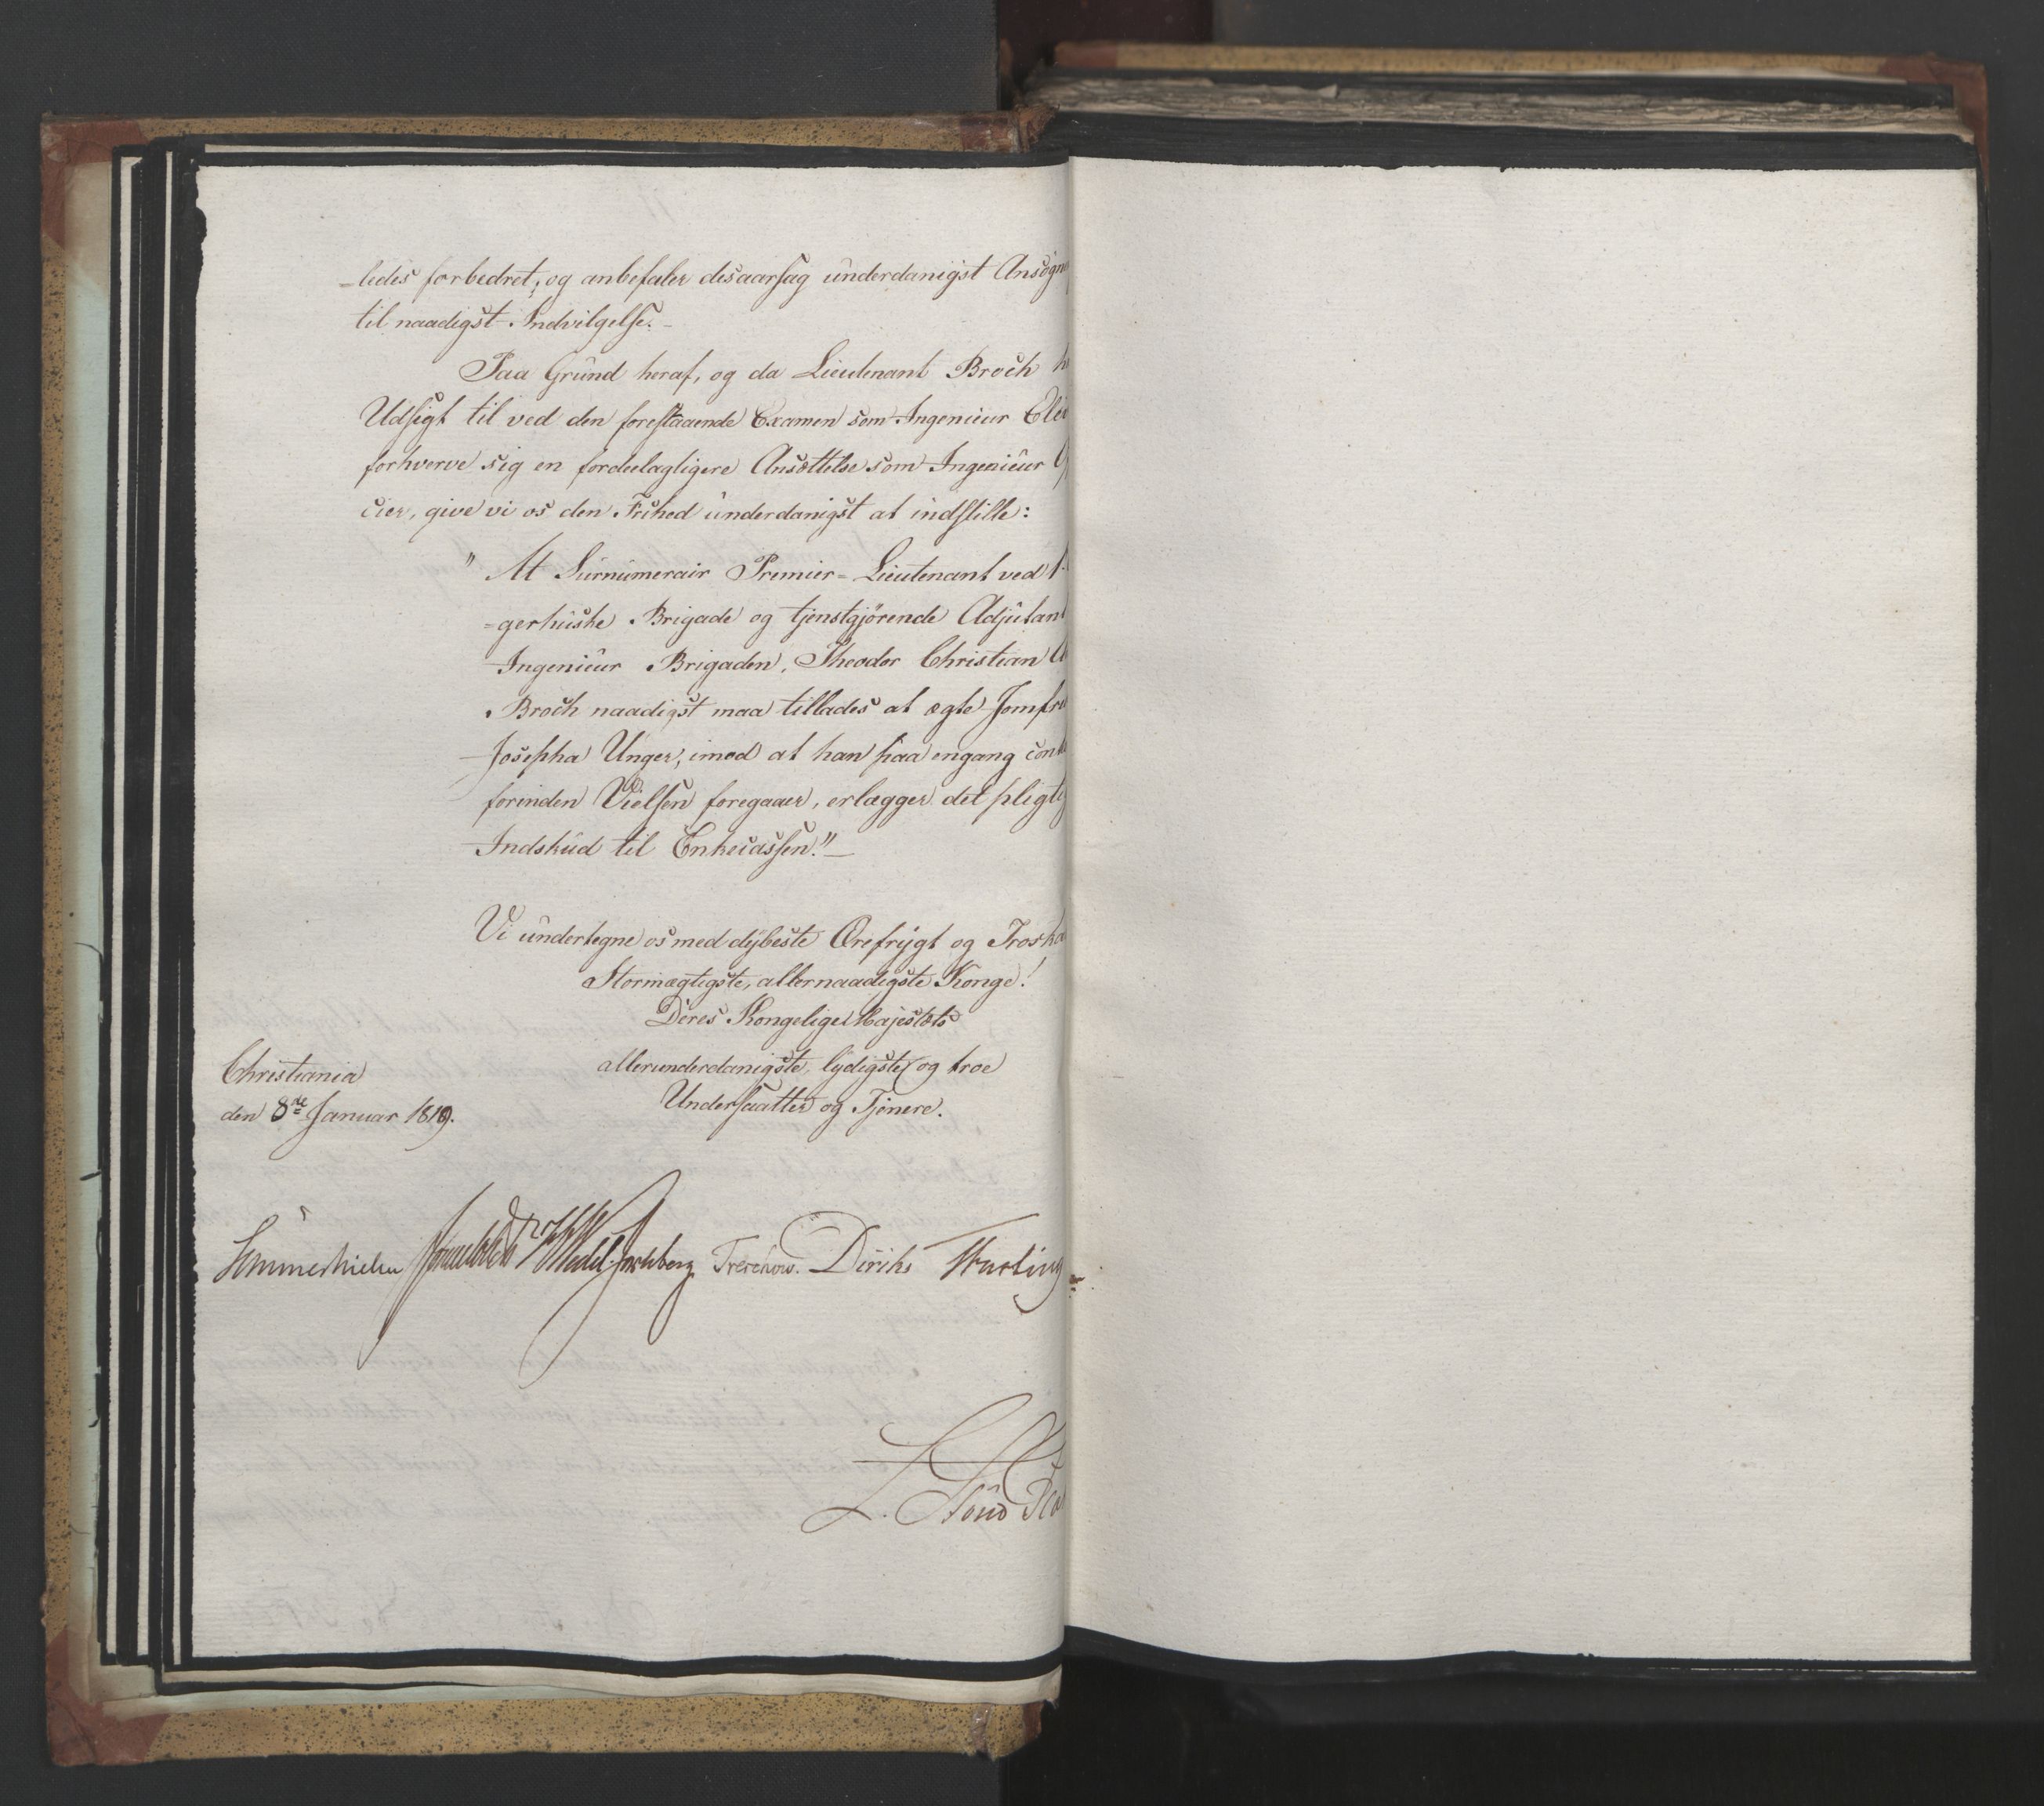 -ledes forbedret; og anbefaler desaarsag underdanigst Ansøgn
til naadigst Indvilgelse. –
Paa Grund heraf, og da Lieutenant Broch h
Udsigt til ved den forestaaende Examen som Ingenieur Elev
forhverve sig en fordeelagtigere Ansættelse som Ingenieur
cier, give vi os den Frihed underdanigst at indstille:
" At Surnumerair Premier-Lieutenant ved
=gerhuske Brigade og tjenstgjørende Adjutant
Ingenieur Brigaden, Theodor Christian
Broch naadigst maa tillades at ægte Jomfru
Josepha Unger, imod at han paa engang cont
forinden Vielsen foregaaer, erlægger det pligti
Indskud til Enkecassen." –
Vi undertegne os med dybeste Ærefrygt og Troska
Stormægtigste, allernaadigste Konge!
Deres Kongelige Majestæts
allerunderdanigste, lydigste og troe
Undersaatter og Tjenere.
Christiania
den 8de Januar 1819.
Sommerhielm Wedel-Jarlsberg Treschow. Diriks Fasting
L.